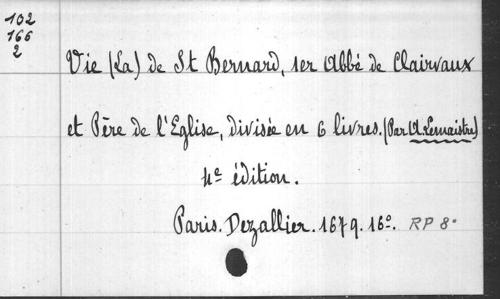 102
166
2
Vie (La) de St Bernard, 1er Abbé de Clairvaux
et Père de l'Eglise, divisée en 6 livres. (Par A. Lemaistre)
4e édition.
Paris. Dezallier. 1679. 16º. RP 8º